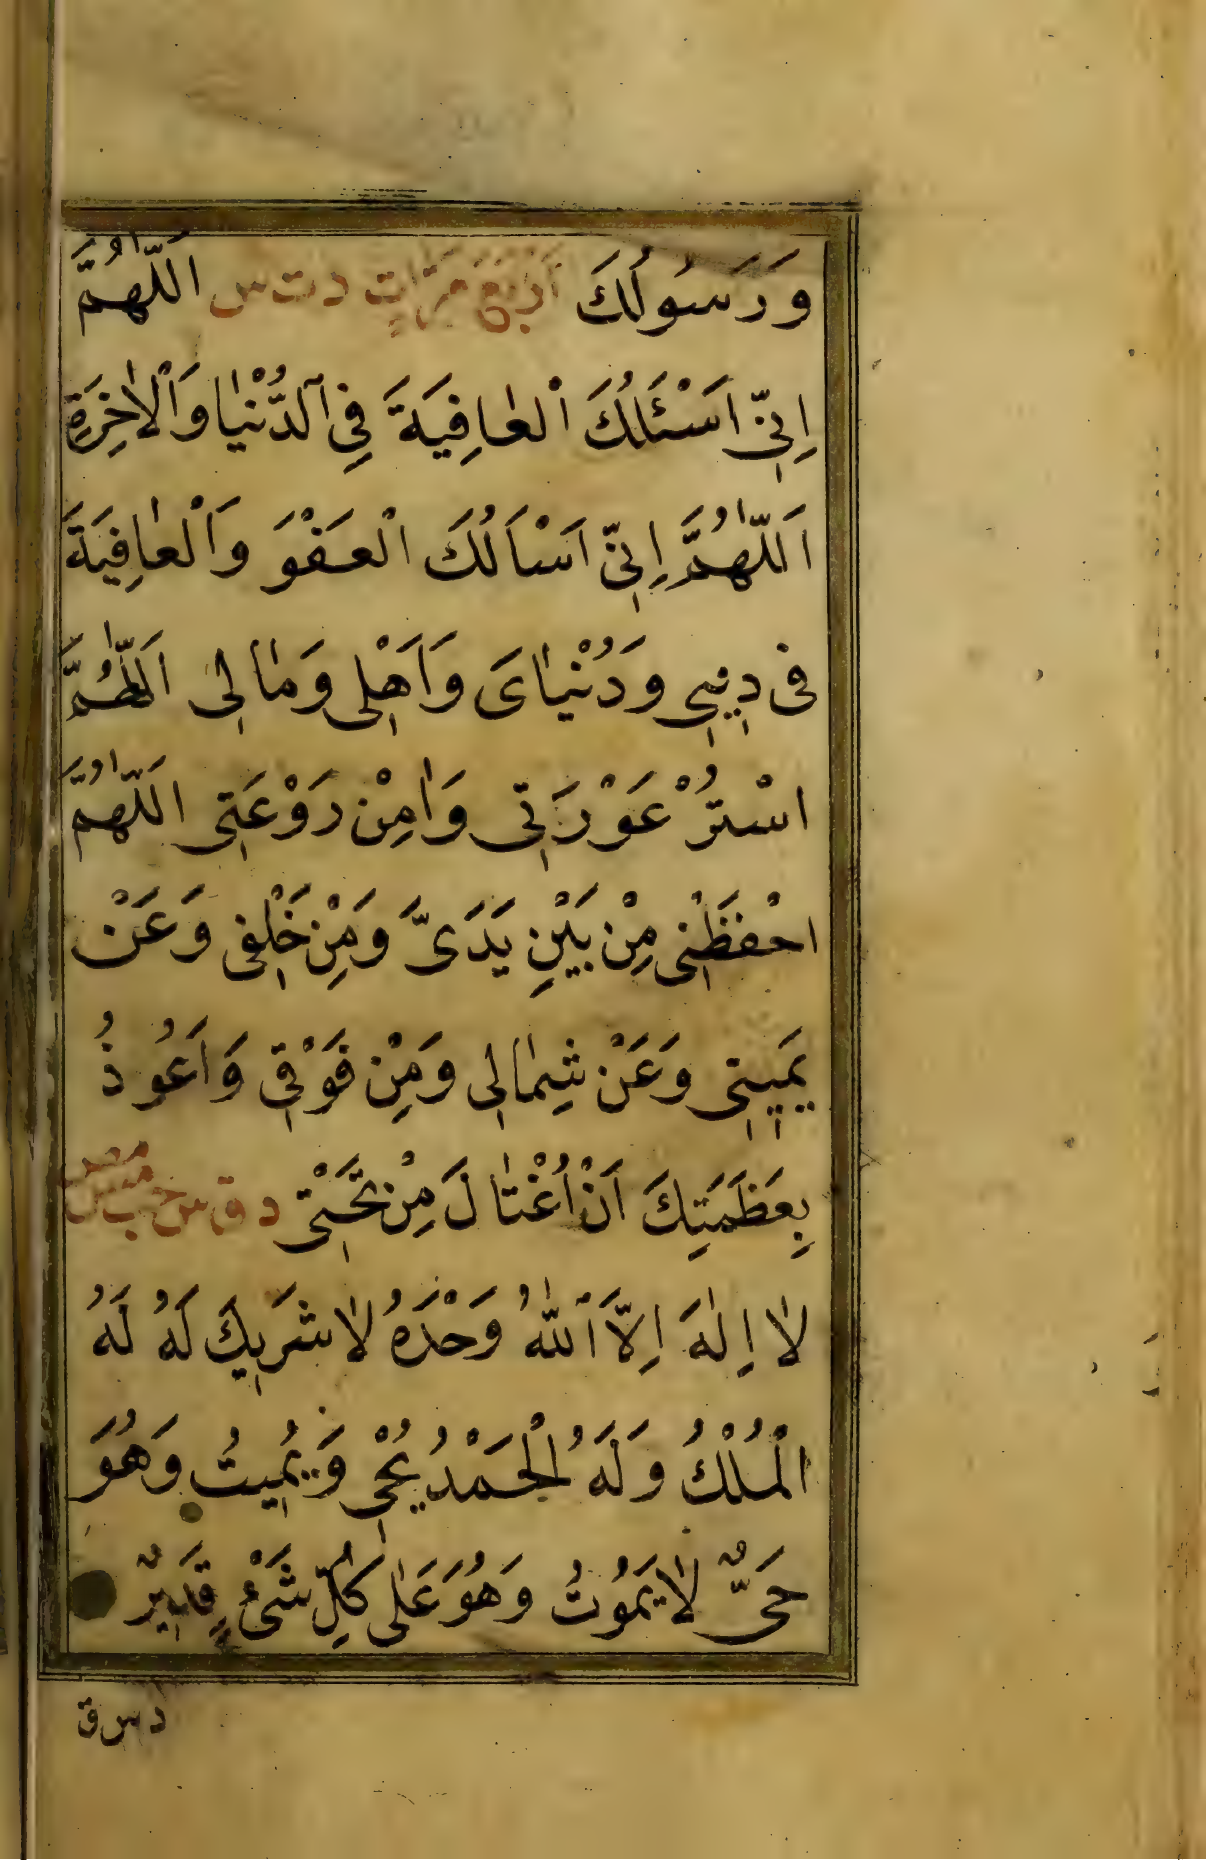 وَرَسُولُكَ اَرْبَعَ مَرَّاتٍ د ت س اَللّٰهُمَّ
اِنِّى اَسْئَلُكَ الْعَافِيَةَ فِى الدُّنْيَا وَالْاٰخِرَةِ
اَللّٰهُمَّ اِنِّى اَسْاَلُكَ الْعَفْوَ وَالْعَافِيَةَ
فى دِينِى وَدُنْيَاىَ وَاَهْلِى وَمَالِى اَللّٰهُمَّ
اسْتُرْ عَوْرَتِى وَاٰمِنْ رَوْعَتِى اللّٰهُمَّ
احْفَظْنِى مِنْ بَيْنِ يَدَىَّ وَمِنْ خَلْفِى وَعَنْ
يَمِينِى وَعَنْ شِمَالِى وَمِنْ فَوْقِى وَاَعُوذُ
بِعَظَمَتِكَ اَنْ اُغْتَالَ مِنْ تَحْتِى د ق س حب مس مص
لَا اِلٰهَ اِلَّا اللّٰهُ وَحْدَهُ لَا شَرِيكَ لَهُ لَهُ
الْمُلْكُ وَلَهُ الْحَمْدُ يُحْيِى وَيُمِيتُ وَهُوَ
حَىٌّ لَا يَمُوتُ وَهُوَ عَلٰى كُلِّ شَىْءٍ قَدِيرٌ
د س ق